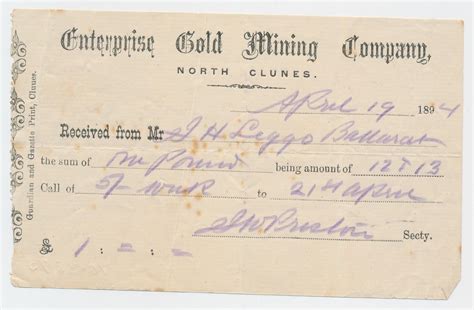 Enterprise Gold Mining Company,
NORTH CLUNES.
April 19 1894
Received from Mr J H Leggo Ballarat
the sum of One Pound being amount of 12 & 13
Call of 5/ to 21st April
Secty.
£ 1 : - : -
Guardian and Gazette Print, Clunes.